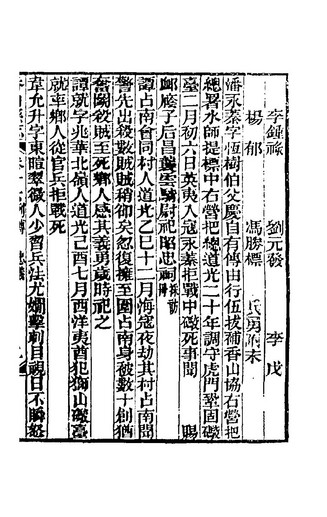 李鍾祿　劉元發　李戊
楊郁　馮勝標　民勇附末
潘永泰字恆樹伯父慶自有傳由行伍拔補香山協右營把
總署水師提標中右營把總道光二十年調守虎門鞏固礮
臺二月初六日英夷入寇永泰拒戰中礮死事聞　賜
卹廕子后昌襲雲騎尉祀昭忠祠採訪
譚占南會同村人道光乙巳十二月海寇夜劫其村占南聞
警先出殺數賊賊稍卻矣忽復擁至圍占南身被數十創猶
奮鬬殺賊至死鄉人感其義勇歲時祀之
譚就字兆華北嶺人道光己酉七月西洋夷酋犯獅山礮臺
就率鄉人從官兵拒戰死
韋允升字東暄翠微人少習兵法尤嫻擊刺目視日不瞬怒